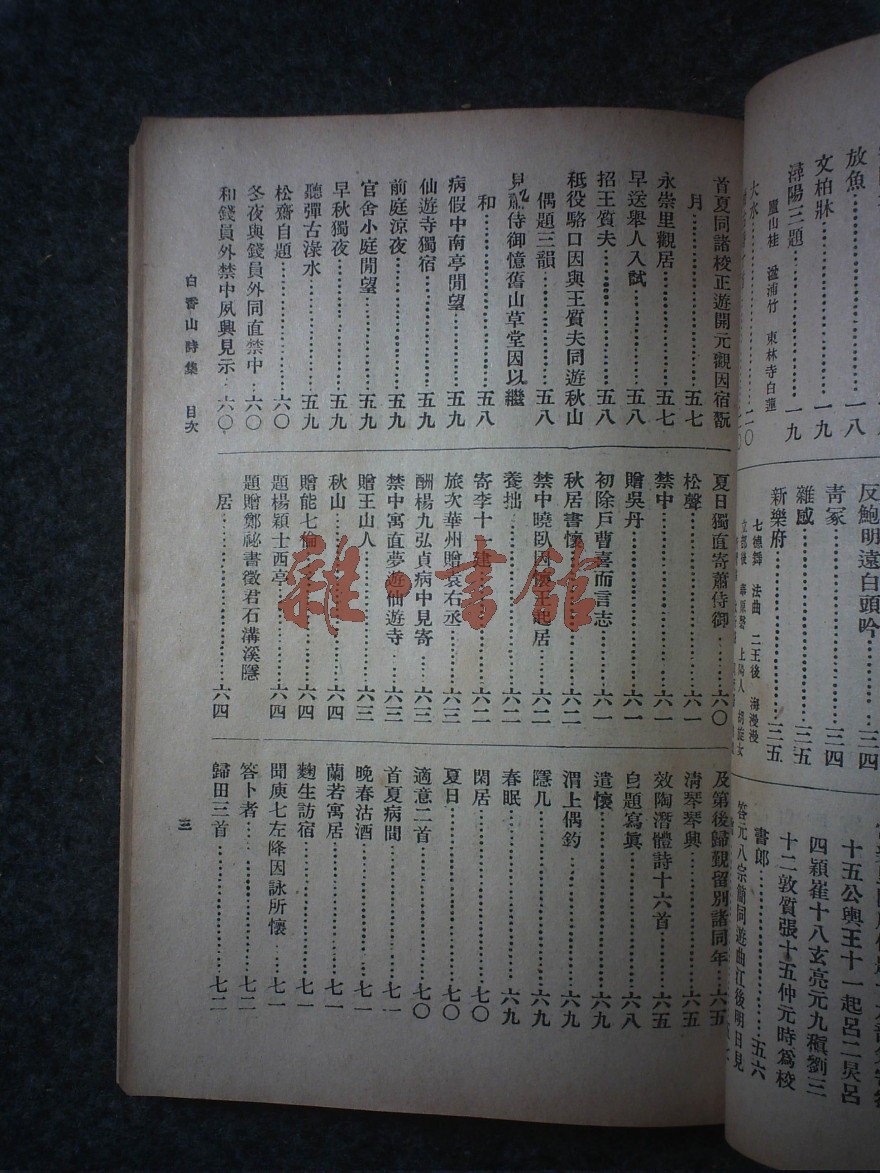 放魚⋯⋯一八
文柏牀⋯⋯一九
潯陽三題⋯⋯一九
廬山桂 湓浦竹 東林寺白蓮
大水⋯⋯二〇
反鮑明遠白頭吟⋯⋯三四
靑冢⋯⋯三四
雜感⋯⋯三五
新樂府⋯⋯三五
七德舞 法曲 二王後 海漫漫
立部伎 華原磬 上陽人 胡旋女
十五公輿王十一起呂二炅呂
四熲崔十八玄亮元九稹劉三
十二敦質張十五仲元時爲校
書郎⋯⋯五六
答元八宗簡同遊曲江後明日見
首夏同諸校正遊開元觀因宿翫
月⋯⋯五七
永崇里觀居⋯⋯五七
早送舉人入試⋯⋯五八
招王質夫⋯⋯五八
秪役駱口因與王質夫同遊秋山
偶題三韻⋯⋯五八
侍御憶舊山草堂因以繼
和⋯⋯五八
病假中南亭閒望⋯⋯五九
仙遊寺獨宿⋯⋯五九
前庭涼夜⋯⋯五九
官舍小庭閒望⋯⋯五九
早秋獨夜⋯⋯五九
聽彈古淥水⋯⋯五九
松齋自題⋯⋯六〇
冬夜與錢員外同直禁中⋯⋯六〇
和錢員外禁中夙興見示⋯⋯六〇
夏日獨直寄蕭侍御⋯⋯六〇
松聲⋯⋯六一
禁中⋯⋯六一
贈吳丹⋯⋯六一
初除戶曹喜而言志⋯⋯六一
秋居書懷⋯⋯六二
禁中曉臥因懷王起居⋯⋯六二
養拙⋯⋯六二
寄李十一建⋯⋯六二
旅次華州贈袁右丞⋯⋯六三
酬楊九弘貞病中見寄⋯⋯六三
禁中寓直夢遊仙遊寺⋯⋯六三
贈王山人⋯⋯六三
秋山⋯⋯六四
贈能七倫⋯⋯六四
題楊穎士西亭⋯⋯六四
題贈鄭祕書徵君石溝溪隱
居⋯⋯六四
及第後歸覲留別諸同年⋯⋯六五
淸琴琴興⋯⋯六五
效陶潛體詩十六首⋯⋯六五
自題寫眞⋯⋯六八
遣懷⋯⋯六九
渭上偶釣⋯⋯六九
隱几⋯⋯六九
春眠⋯⋯六九
閑居⋯⋯七〇
夏日⋯⋯七〇
適意二首⋯⋯七〇
首夏病間⋯⋯七一
晚春沽酒⋯⋯七一
蘭若寓居⋯⋯七一
麴生訪宿⋯⋯七一
聞庾七左降因詠所懷⋯⋯七一
答卜者⋯⋯七二
歸田三首⋯⋯七二
白香山詩集 目次
三
雜書館